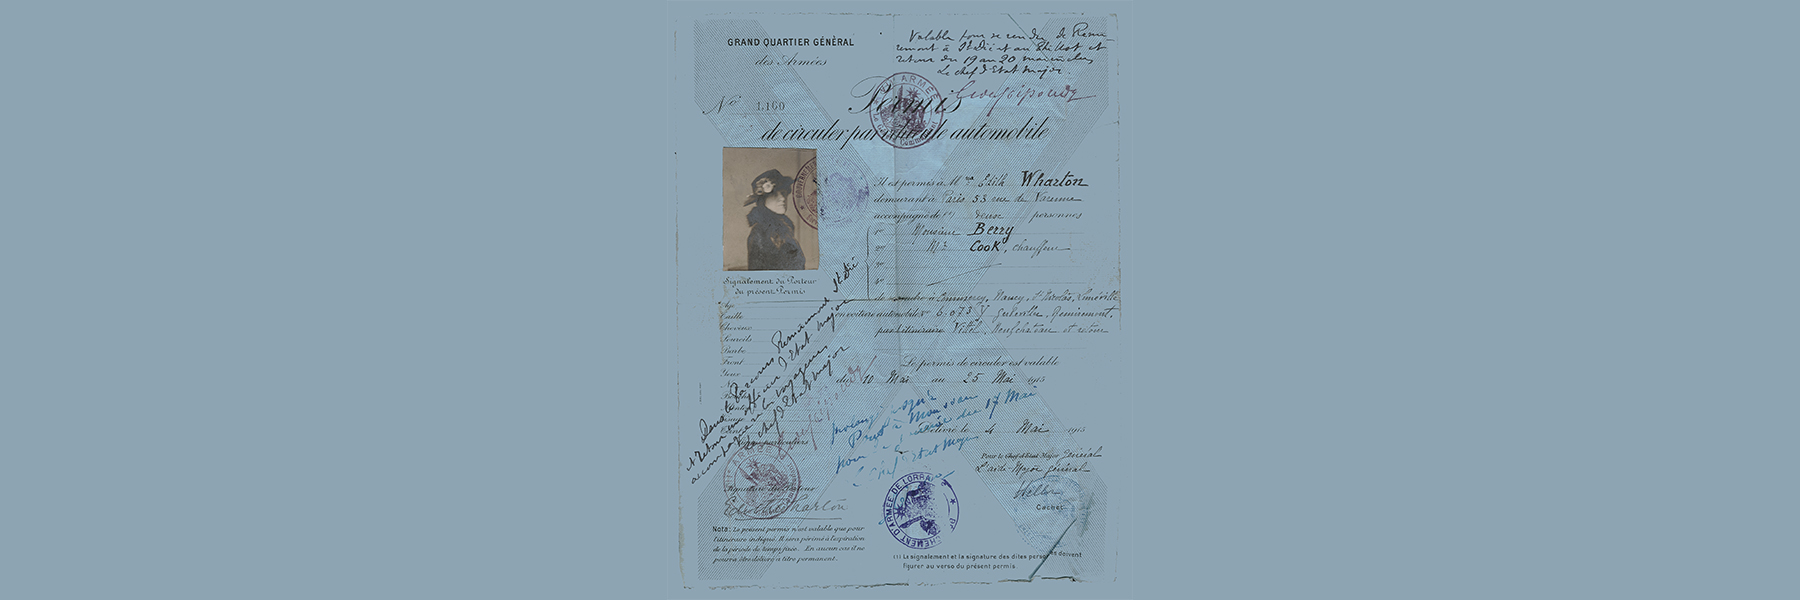 GRAND QUARTIER GÉNÉRAL
des Armées
Valable pour se rendre de Remi-
remont à St Dié et au Thillot et
retour du 19 au 20 mai inclus
Le chef d'Etat Major.
No 1.160
Permis
de circuler par automobile
Il est permis à Mme Edith Wharton
demeurant à Paris 53 rue de Varenne
accompagnée de (1) deux personnes
1o Monsieur Berry
2o Mr Cook, chauffeur
3o
4o
de se rendre à Commercy, Nancy, St Nicolas, Lunéville
en voiture automobile no 6.073 Remiremont,
par l'itinéraire Vittel, Neufchateau et retour
Signalement du Porteur
du présent Permis
Age
Taille
Cheveux
Sourcils
Barbe
Front
Yeux
Le permis de circuler est valable
du 10 Mai au 25 Mai 1915
Dans le parcours Remiremont St Dié
et retour un officier d'Etat Major
accompagnera les voyageurs
Le chef d'Etat Major
prolongé jusqu'à
Pont à Mousson
pour la journée du 17 Mai
Le Chef d'Etat Major
Délivré le 4 Mai 1915
Pour le Chef d'Etat Major Général
L'aide Major général
Cachet
Signature du Porteur
Edith Wharton
DÉTACHEMENT D'ARMÉE DE LORRAINE
Nota: Le présent permis n'est valable que pour
l'itinéraire indiqué. Il sera périmé à l'expiration
de la période de temps fixée. En aucun cas il ne
pourra être délivré à titre permanent.
(1) Le signalement et la signature des dites personnes doivent
figurer au verso du présent permis